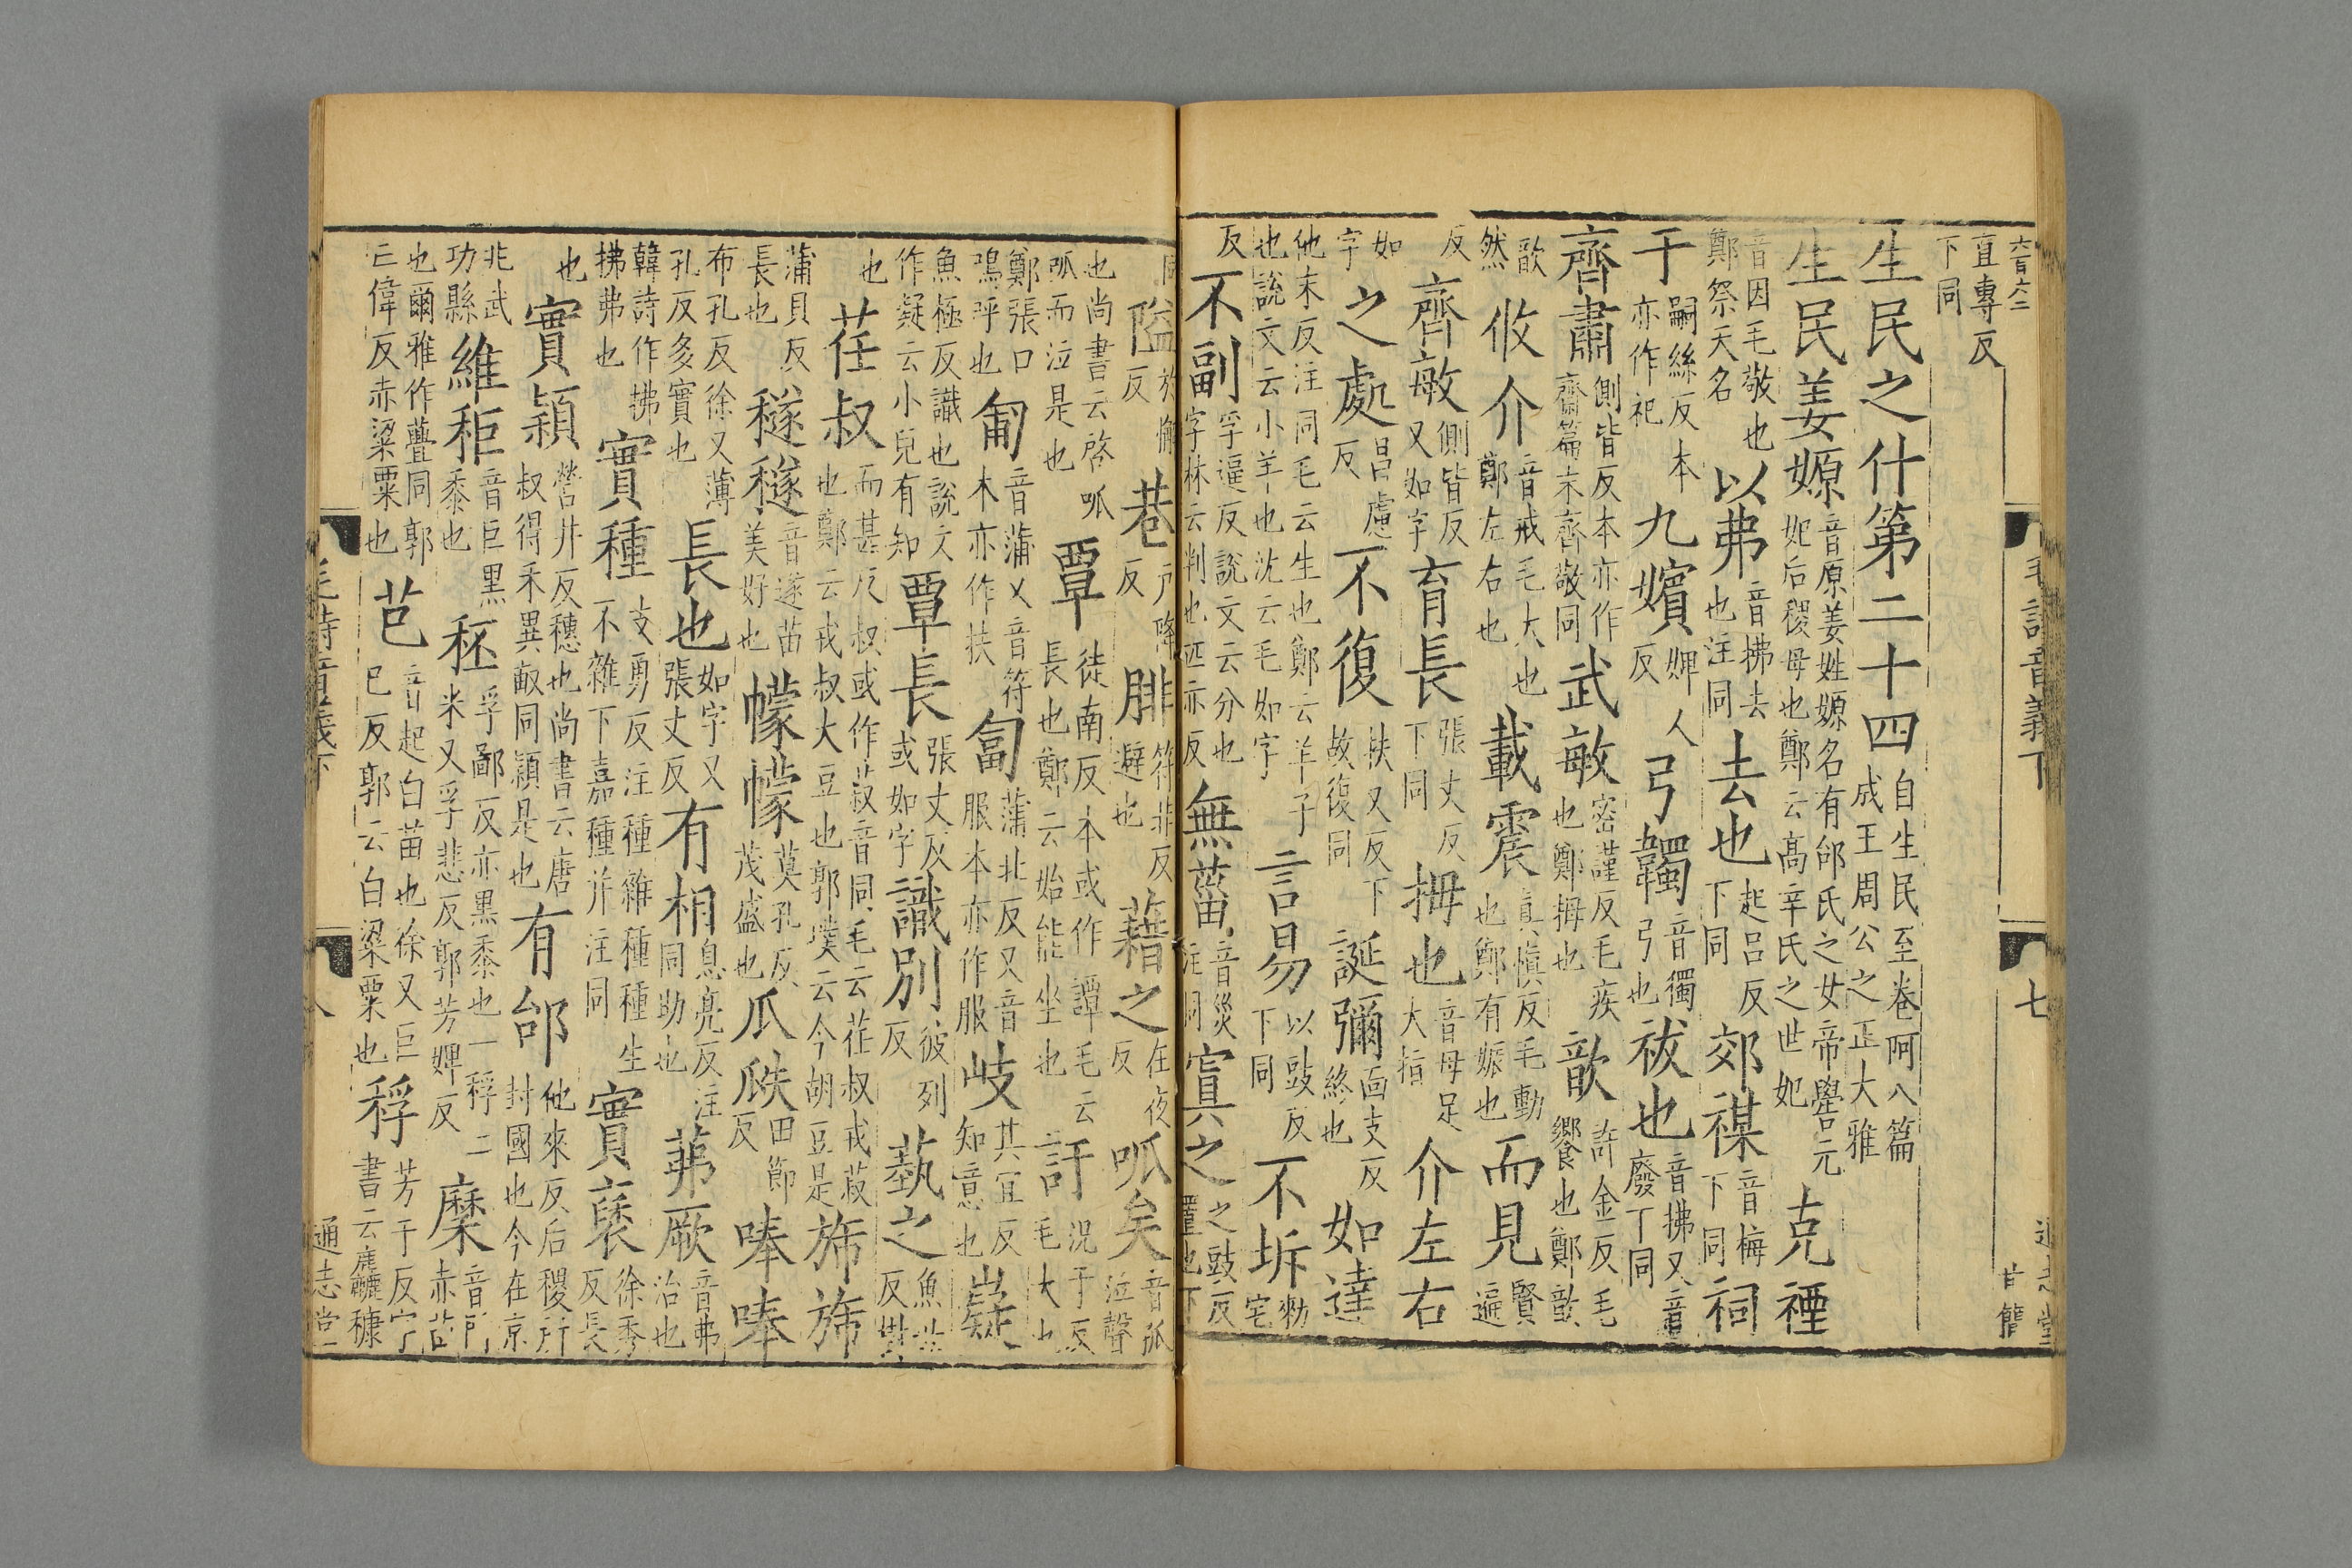 毛詩音義下 七 通志堂 甘簡
直專反下同
生民之什第二十四 自生民至卷阿八篇成王周公之正大雅
生民姜嫄 音原姜姓嫄名有邰氏之女帝嚳元妃后稷母也鄭云高辛氏之世妃 克禋
音因毛敬也鄭祭天名 以弗 音拂去也注同 去也 起呂反下同 郊禖 音梅下同 祠
于 嗣絲反本亦作祀 九嬪 婢人反 弓韣 音獨弓也 祓也 音拂又音廢下同
齊肅 側皆反本亦作齋篇末齊敬同 武敏 密謹反毛疾也鄭拇也 歆 許金反毛饗也鄭歆
歆然 攸介 音戒毛大也鄭左右也 載震 真慎反毛動也鄭有娠也 而見 賢遍
反 齊敏 側皆反又如字 育長 張丈反下同 拇也 音母足大指 介左右
如字 之處 昌慮反 不復 扶又反下故復同 誕彌 面支反終也 如達
他末反注同毛云生也鄭云羊子也說文云小羊也沈云毛如字 言易 以豉反下同 不坼 勑宅
反 不副 孚逼反說文云分也字林云判也匹亦反 無菑 音災注同 寘之 之豉反置也下
同 隘 於懈反 巷 戶降反 腓 符非反避也 藉之 在夜反 呱矣 音孤泣聲
也尚書云啓呱呱而泣是也 覃 徒南反本或作譚毛云長也鄭云始能坐也 訏 況于反毛大也
鄭張口嗚呼也 匍 音蒲又音符本亦作扶 匐 蒲北反又音服本亦作服 岐 其宜反知意也 嶷
魚極反識也說文作㘈云小兒有知 覃長 張丈反或如字 識別 彼列反 蓺之 魚世反樹
也 荏叔 而甚反叔或作菽音同毛云荏叔戎菽也鄭云戎叔大豆也郭璞云今胡豆是 旆旆
蒲貝反長也 穟穟 音遂苗美好也 幪幪 莫孔反茂盛也 瓜瓞 田節反 唪唪
布孔反徐又薄孔反多實也 長也 如字又張丈反 有相 息亮反注同助也 茀厥 音弗治也
韓詩作拂拂弗也 實種 支勇反注種雜種種生不雜下嘉種并注同 實褎 徐秀反長
也 實穎 營井反穗也尚書云唐叔得禾異畝同穎是也 有邰 他來反后稷所封國也今在京
兆武功縣 維秬 音巨黑黍也 秠 孚鄙反亦黑黍也一稃二米又孚悲反郭芳婢反 穈 音門赤苗
也爾雅作虋同郭亡偉反赤粱粟也 芑 音起白苗也徐又巨已反郭云白粱粟也 稃 芳于反字書云麤穅
毛詩音義下 八 通志堂